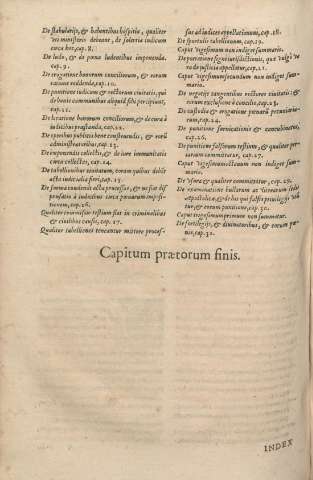 De stabularijs, & habentibus hospitia, qualiter
vti ministerio debeant, de solertia iudicum
circa hoc, cap. 8.
De ludo, & in pœna ludentibus imponenda,
cap. 9.
De erogatione bonorum concilium, & eorum
ratione reddenda, cap. 10.
De punitione iudicum & rectorum ciuitatis, qui
de bonis communibus aliquid sibi percipiunt,
cap. 11.
De locatione bonorum concilium, & de cura à
iudicibus præstanda, cap. 12.
De operibus publicis bene construendis, &
administratoribus, cap. 13.
De imponendis collectis, & de iure immunitatis
circa collectas, cap. 14.
De tabellionibus ciuitatum, eorum qualitas debet
acta iudicialia fieri, cap. 15.
De forma tenendi acta processus, &
positionem, cap. 16.
Qualiter receptio testium fiat in criminalibus
& ciuilibus causis, cap. 17.
Qualiter tabelliones teneantur mittere proces-
sus ad iudices appellationum, cap. 18.
De sportulis tabellionum, cap. 19.
Caput vigesimum non indiget summarijs.
De iurisdictionis, quæ vulgo
de iustitia appellatur, cap. 21.
Caput vigesimumsecundum non indiget summarijs.
De negotijs tangentibus rectores ciuitatis: &
eorum exclusione à concilio, cap. 23.
De custodia & erogatione pœnarum pecuniaria-
rum, cap. 24.
De punitione fornicationis & concubinatus,
cap. 26.
De punitione falsorum testium, & qualiter
committatur, cap. 27.
Caput vigesimumoctauum non indiget summarijs.
De vsura & qualiter committatur, cap. 29.
De examinatione bullarum ac literarum sedis
Apostolicæ, & de his qui falsis priuilegijs
& eorum punitione, cap. 30.
Caput trigesimum primum non summatur.
De sortilegijs, & diuinatoribus, & eorum pœ-
nis, cap. 32.
Capitum prætorum finis.
INDEX